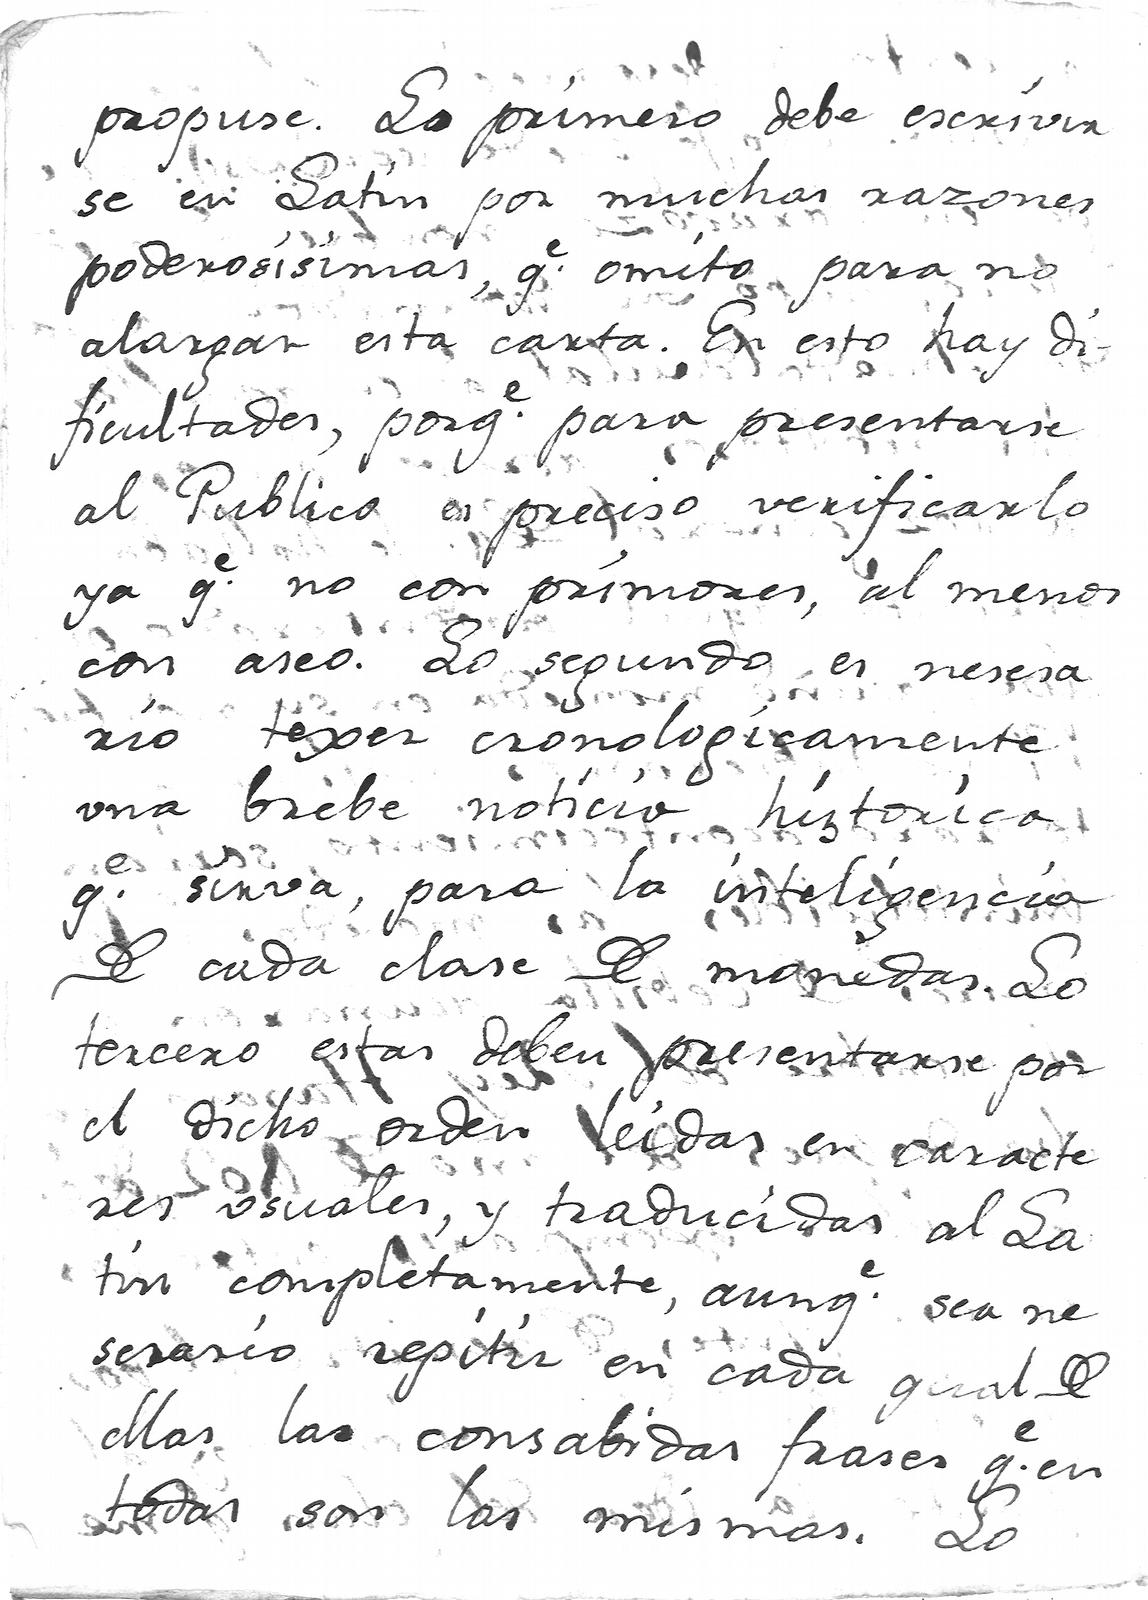 propuse. Lo primero debe escrivir
se en Latin por muchas razones
poderosísimas, q.e omito para no
alargar esta carta. En esto hay di-
ficultades, porq.e para presentarse
al Publico es preciso verificarlo
ya q.e no con primores, al menos
con aseo. Lo segundo es nesesa
rio texer cronologicamente
vna brebe noticia historica
q.e sirva, para la inteligencia
De cada clase De monedas. Lo
tercero estas deben presentarse por
el dicho orden leidas en caracte
res vsuales, y traducidas al La
tin completamente, aunq.e sea ne
serario repitir en cada qual De
ellas las consabidas frases q.e en
todas son las mismas. Lo